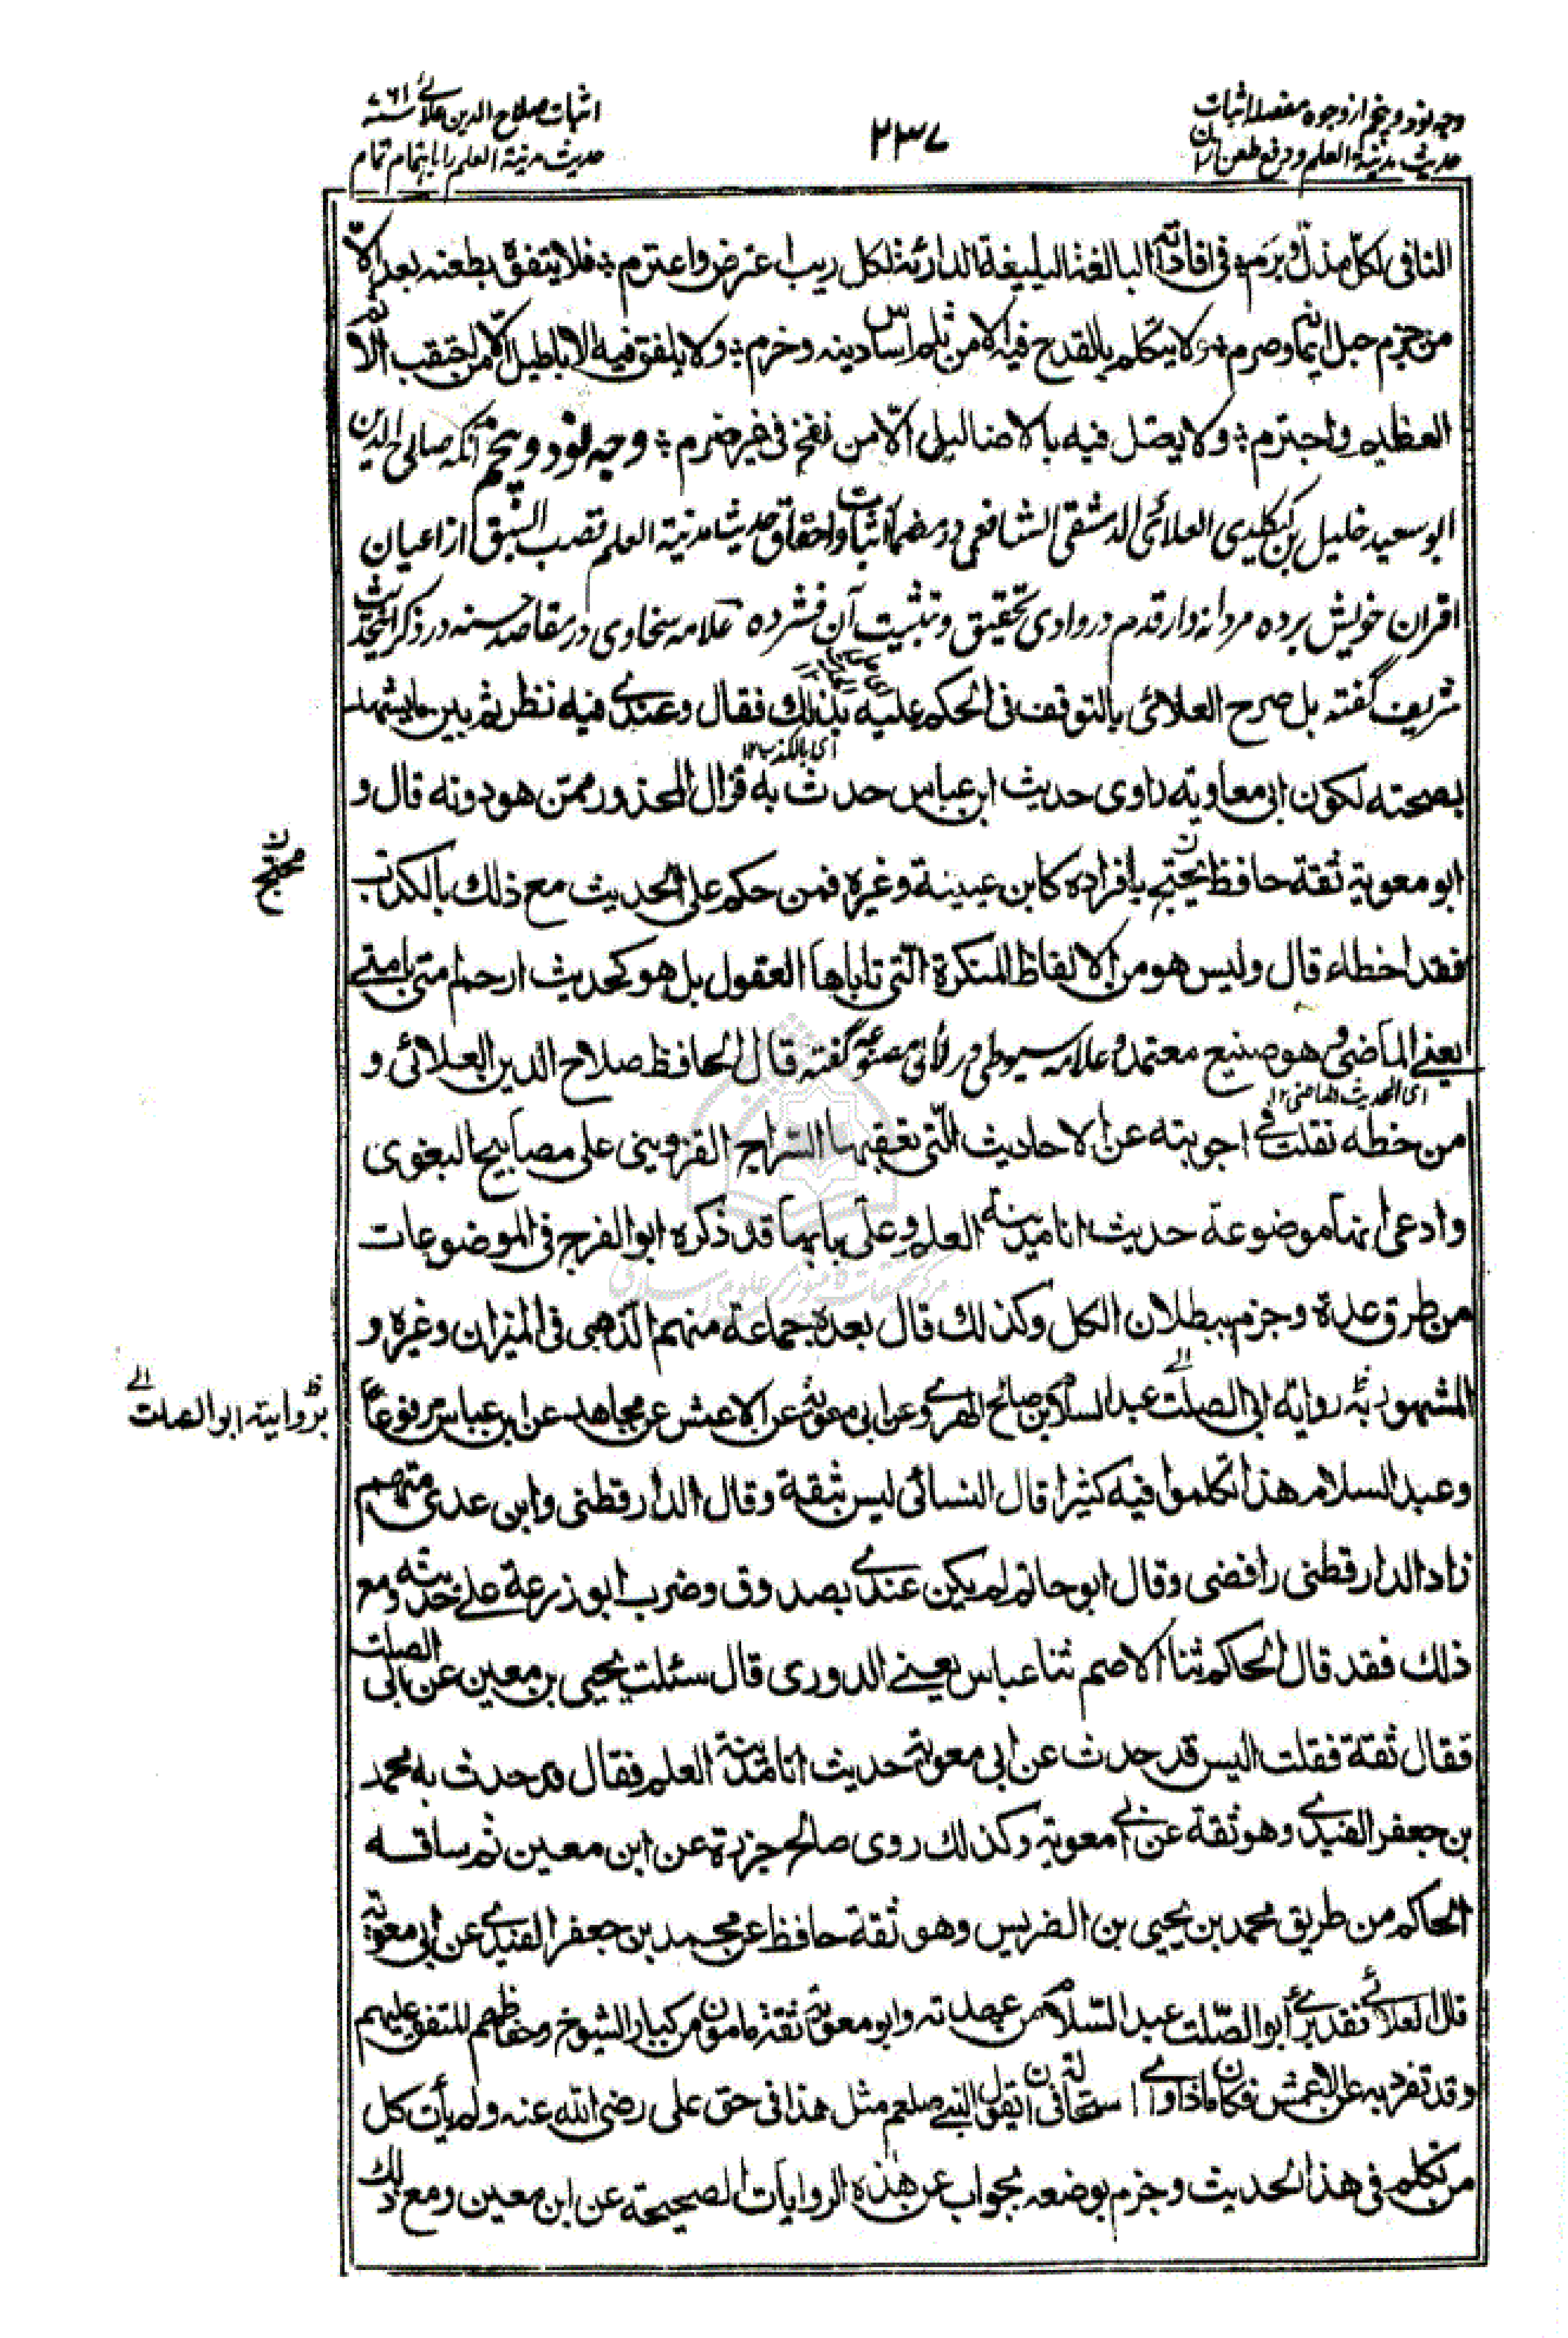 وجه نود و پنجم از وجوه مفصله اثبات
حدیث مدینة العلم و دفع طعن ان
۲۳۷
اثبات صلاح الدین علائی سنه ۷۶۱
حدیث مدینة العلم را باهتمام تمام
النافی لکل مذل وبرم فی افاداته البالغة البلیغة الدارئة لکل ریب اعترض واعترم فلا یتفوه بطعنه بعد الا
من جزم حبل ایمانه وصرم ولا یتکلم بالقدح فیه الا من ثلم اساس دینه وخرم ولا یلفق فیه الاباطیل الا من احتقب الاثم
العظیم واجترم ولا یضل فیه بالاضالیل الا من نفخ فی غیر ضرم وجه نود و پنجم آنکه صلاح الدین
ابو سعید خلیل بن کیکلدی العلائی الدمشقی الشافعی در مضمار اثبات واحقاق حدیث مدینة العلم قصب السبق از اعیان
اقران خویش برده مردانه وار قدم در وادی تحقیق و تثبیت آن فشرده علامه سخاوی در مقاصد حسنه در ذکر این حدیث
شریف گفته بل صرح العلائی بالتوقف فی الحکم علیه بذلک فقال وعندی فیه نظر ثم بین ما یشهد
ای بالکذب ۱۲
بصحته لکون ابی معاویة راوی حدیث ابن عباس حدث به فزال المحذور ممن هو دونه قال و
ابو معویة ثقة حافظ یحتج بافراده کابن عیینة وغیره فمن حکم علی الحدیث مع ذلک بالکذب
محتج ن
فقد اخطاء قال ولیس هو من الالفاظ المنکرة التی تاباها العقول بل هو کحدیث ارحم امتی بامتی
یعنی الماضی وهو صنیع معتمد و علامه سیوطی در لآلی مصنوعه گفته قال الحافظ صلاح الدین العلائی و
ای الحدیث الماضی ۱۲
من خطه نقلت فی اجوبته عن الاحادیث التی تعقبها السراج القزوینی علی مصابیح البغوی
وادعی انها موضوعة حدیث انا مدینة العلم وعلی بابها قد ذکره ابو الفرج فی الموضوعات
من طرق عدة وجزم ببطلان الکل وکذلک قال بعده جماعة منهم الذهبی فی المیزان وغیره و
المشهور به روایة ابی الصلت عبد السلام بن صالح الهروی عن ابی معویة عن الاعمش عن مجاهد عن ابن عباس مرفوعاً
بروایة ابو الصلت
وعبد السلام هذا تکلموا فیه کثیرا قال النسائی لیس بثقة وقال الدارقطنی وابن عدی متهم
زاد الدارقطنی رافضی وقال ابو حاتم لم یکن عندی بصدوق وضرب ابو زرعة علی حدیثه ومع
ذلک فقد قال الحاکم ثنا الاصم ثنا عباس یعنی الدوری قال سئلت یحیی بن معین عن ابی الصلت
فقال ثقة فقلت الیس قد حدث عن ابی معویة حدیث انا مدینة العلم فقال قد حدث به محمد
بن جعفر الفیدی وهو ثقة عن ابی معویة وکذلک روی صالح جزرة عن ابن معین ثم ساقه
الحاکم من طریق محمد بن یحیی بن الضریس وهو ثقة حافظ عن محمد بن جعفر الفیدی عن ابی معویة
قال العلائی فقد بری ابو الصلت عبد السلام من عهدته وابو معویة ثقة مامون من کبار الشیوخ وحفاظهم المتفق علیهم
وقد تفرد به عن الاعمش فکان ماذا وای استحالة فی ان یقول النبی صلعم مثل هذا فی حق علی رضی الله عنه ولم یأت کل
من تکلم فی هذا الحدیث وجزم بوضعه بجواب عن هذه الروایات الصحیحة عن ابن معین ومع ذلک